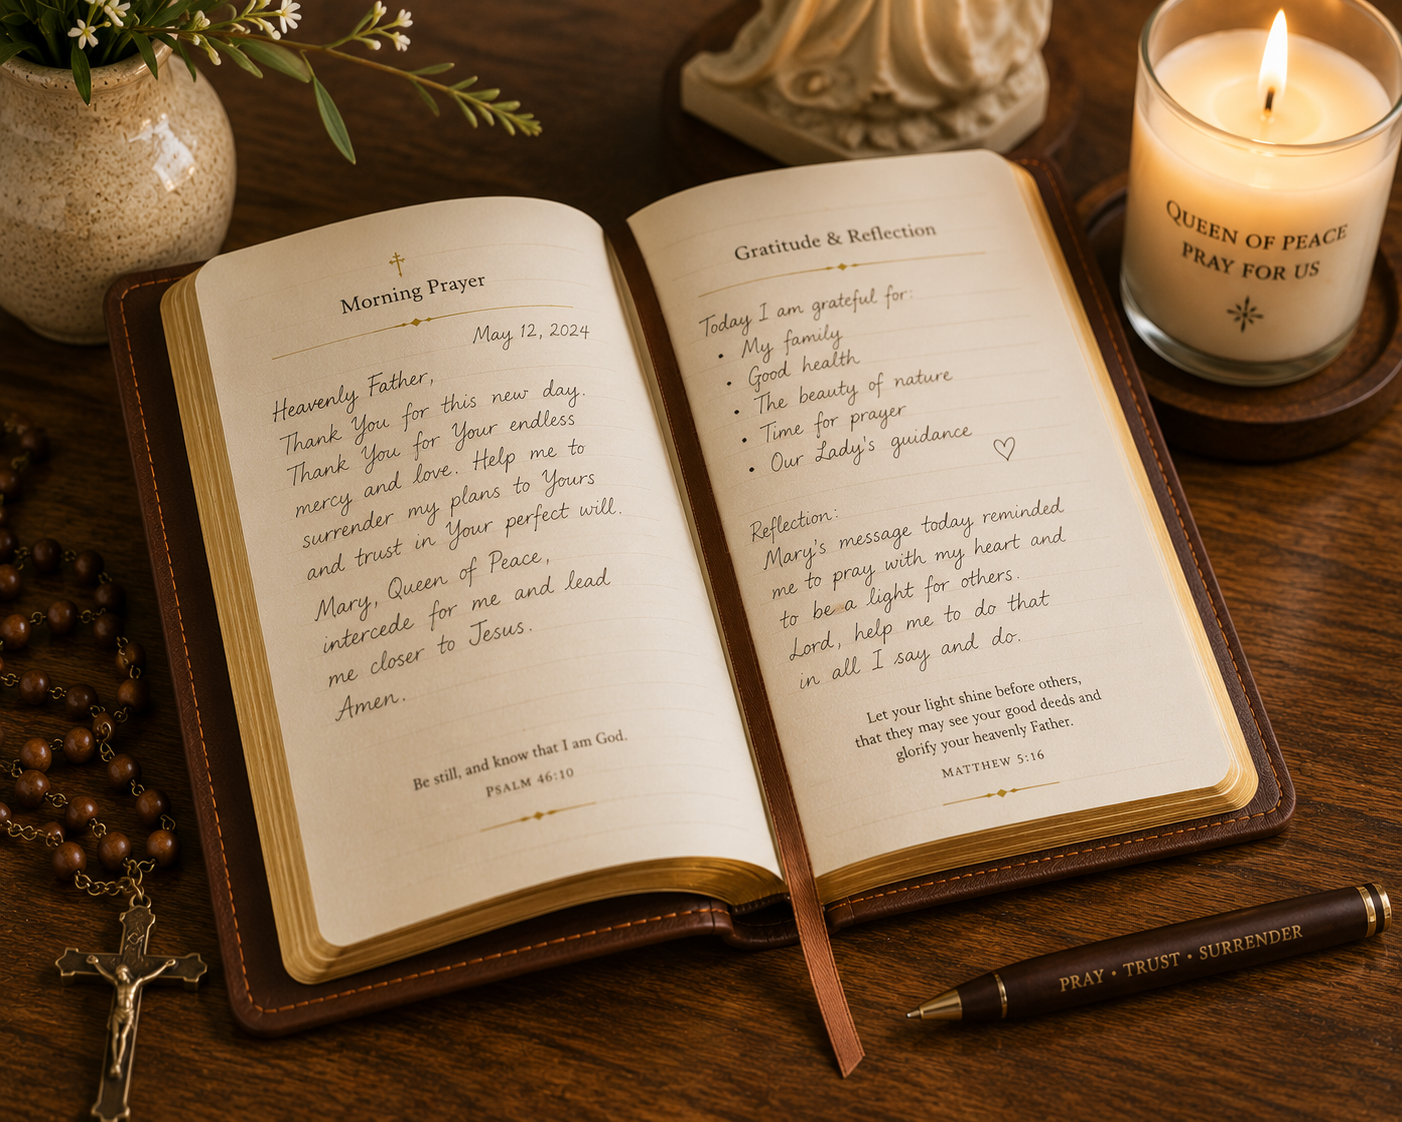 Morning Prayer
May 12, 2024
Heavenly Father,
Thank You for this new day.
Thank You for Your endless
mercy and love. Help me to
surrender my plans to Yours
and trust in Your perfect will.
Mary, Queen of Peace,
intercede for me and lead
me closer to Jesus.
Amen.
Be still, and know that I am God.
PSALM 46:10
Gratitude & Reflection
Today I am grateful for:
• My family
• Good health
• The beauty of nature
• Time for prayer
• Our Lady's guidance
Reflection:
Mary's message today reminded
me to pray with my heart and
to be a light for others.
Lord, help me to do that
in all I say and do.
Let your light shine before others,
that they may see your good deeds and
glorify your heavenly Father.
MATTHEW 5:16
QUEEN OF PEACE
PRAY FOR US
PRAY • TRUST • SURRENDER